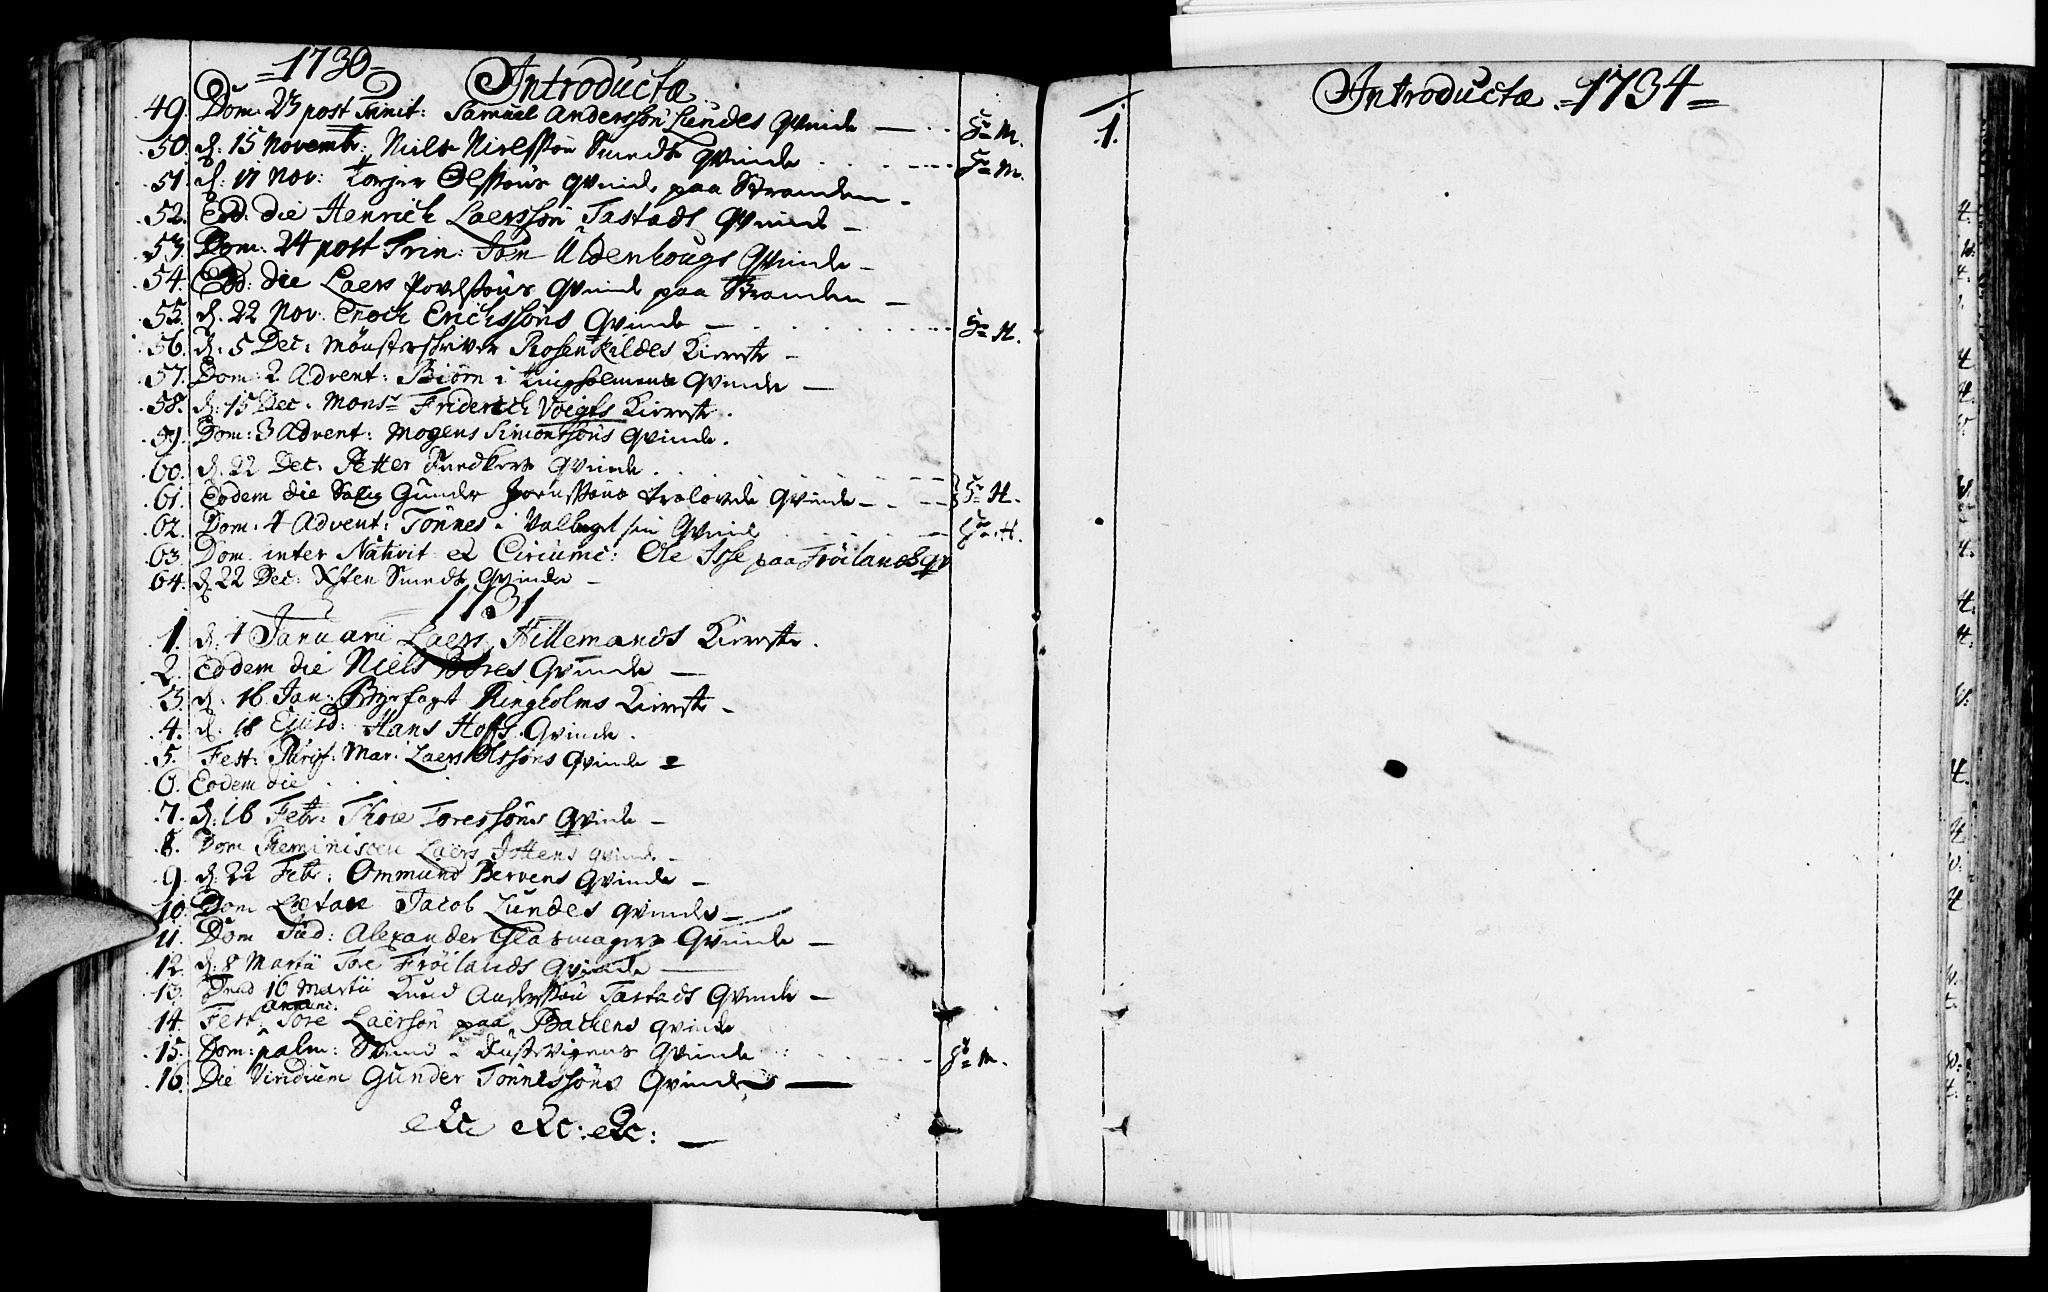 =1730=
Introductæ
49. Dom: 23 post Trinit: Samuel Anderssøn Lundes Qvinde — Hr M.
50. d. 15 Novembr: Niels Nielssøn Smeds Qvinde Hr M.
51. d. 17 Nov: Torger Olssøns Qvinde paa Stranden –
52. Eod: die Henrich Laerssøn Tastads Qvinde –
53. Dom: 24 post Trin: Jon Uldenhougs Qvinde –
54. Eod: die Laers Povelssøns Qvinde paa Stranden –
55. d. 22 Nov. Enoch Erichssøns Qvinde – Hr H.
56. d. 5 Dec: Mønsterskriver Rosenkildes Kiereste –
57. Dom: 2 Advent: Biørn i Qvinde –
58. d. 15 Dec. Monsr Friderich Voigts Kiereste.
59. Dom: 3 Advent: Mogens Simonssøns Qvinde.
60. d. 22 Dec: Petter Qvinde.
61. Eodem die Salig Gunder trolovede Qvinde – Hr H.
62. Dom: 4 Advent: Tønnes i sin Qvinde Hr H.
63. Dom. inter Nativit et Circumc: Ole paa Frøilands qv
64. d. 22 Dec: Xsten Smeds Qvinde –
1731
1. d. 4 Januarii Laers Hillemands Kiereste.
2. Eodem die Niels Bores Qvinde —
3. d. 16 Jan: Byefogt Ringholms Kiereste –
4. d. 18 Ejusd: Hans Hoffs Qvinde.
5. Fest: Purif: Mar. Laers Olssøns Qvinde =
6. Eodem die
7. d. 16 Febr: Thore Toressøns Qvinde –
8. Dom Reminiscere Laers Jottens qvinde –
9. d. 22 Febr: Ommund Bervens Qvinde –
10. Dom Lætare Jacob Lundes qvinde –
11. Dom Jud: Alexander Glasmagers Qvinde —
12. d. 8 Martii Tore Frøilands Qvinde —
13. 16 Martii Knud Anderssøn Tastads Qvinde –
14. Fest Annunc. Tore Laersøn paa Backens qvinde
15. Dom: palm: Svend i Dusevigens Qvinde Hr M.
16. Die Viridium Gunder Tønnessøns Qvinde —
etc etc: etc: —
Introductæ =1734=
1.